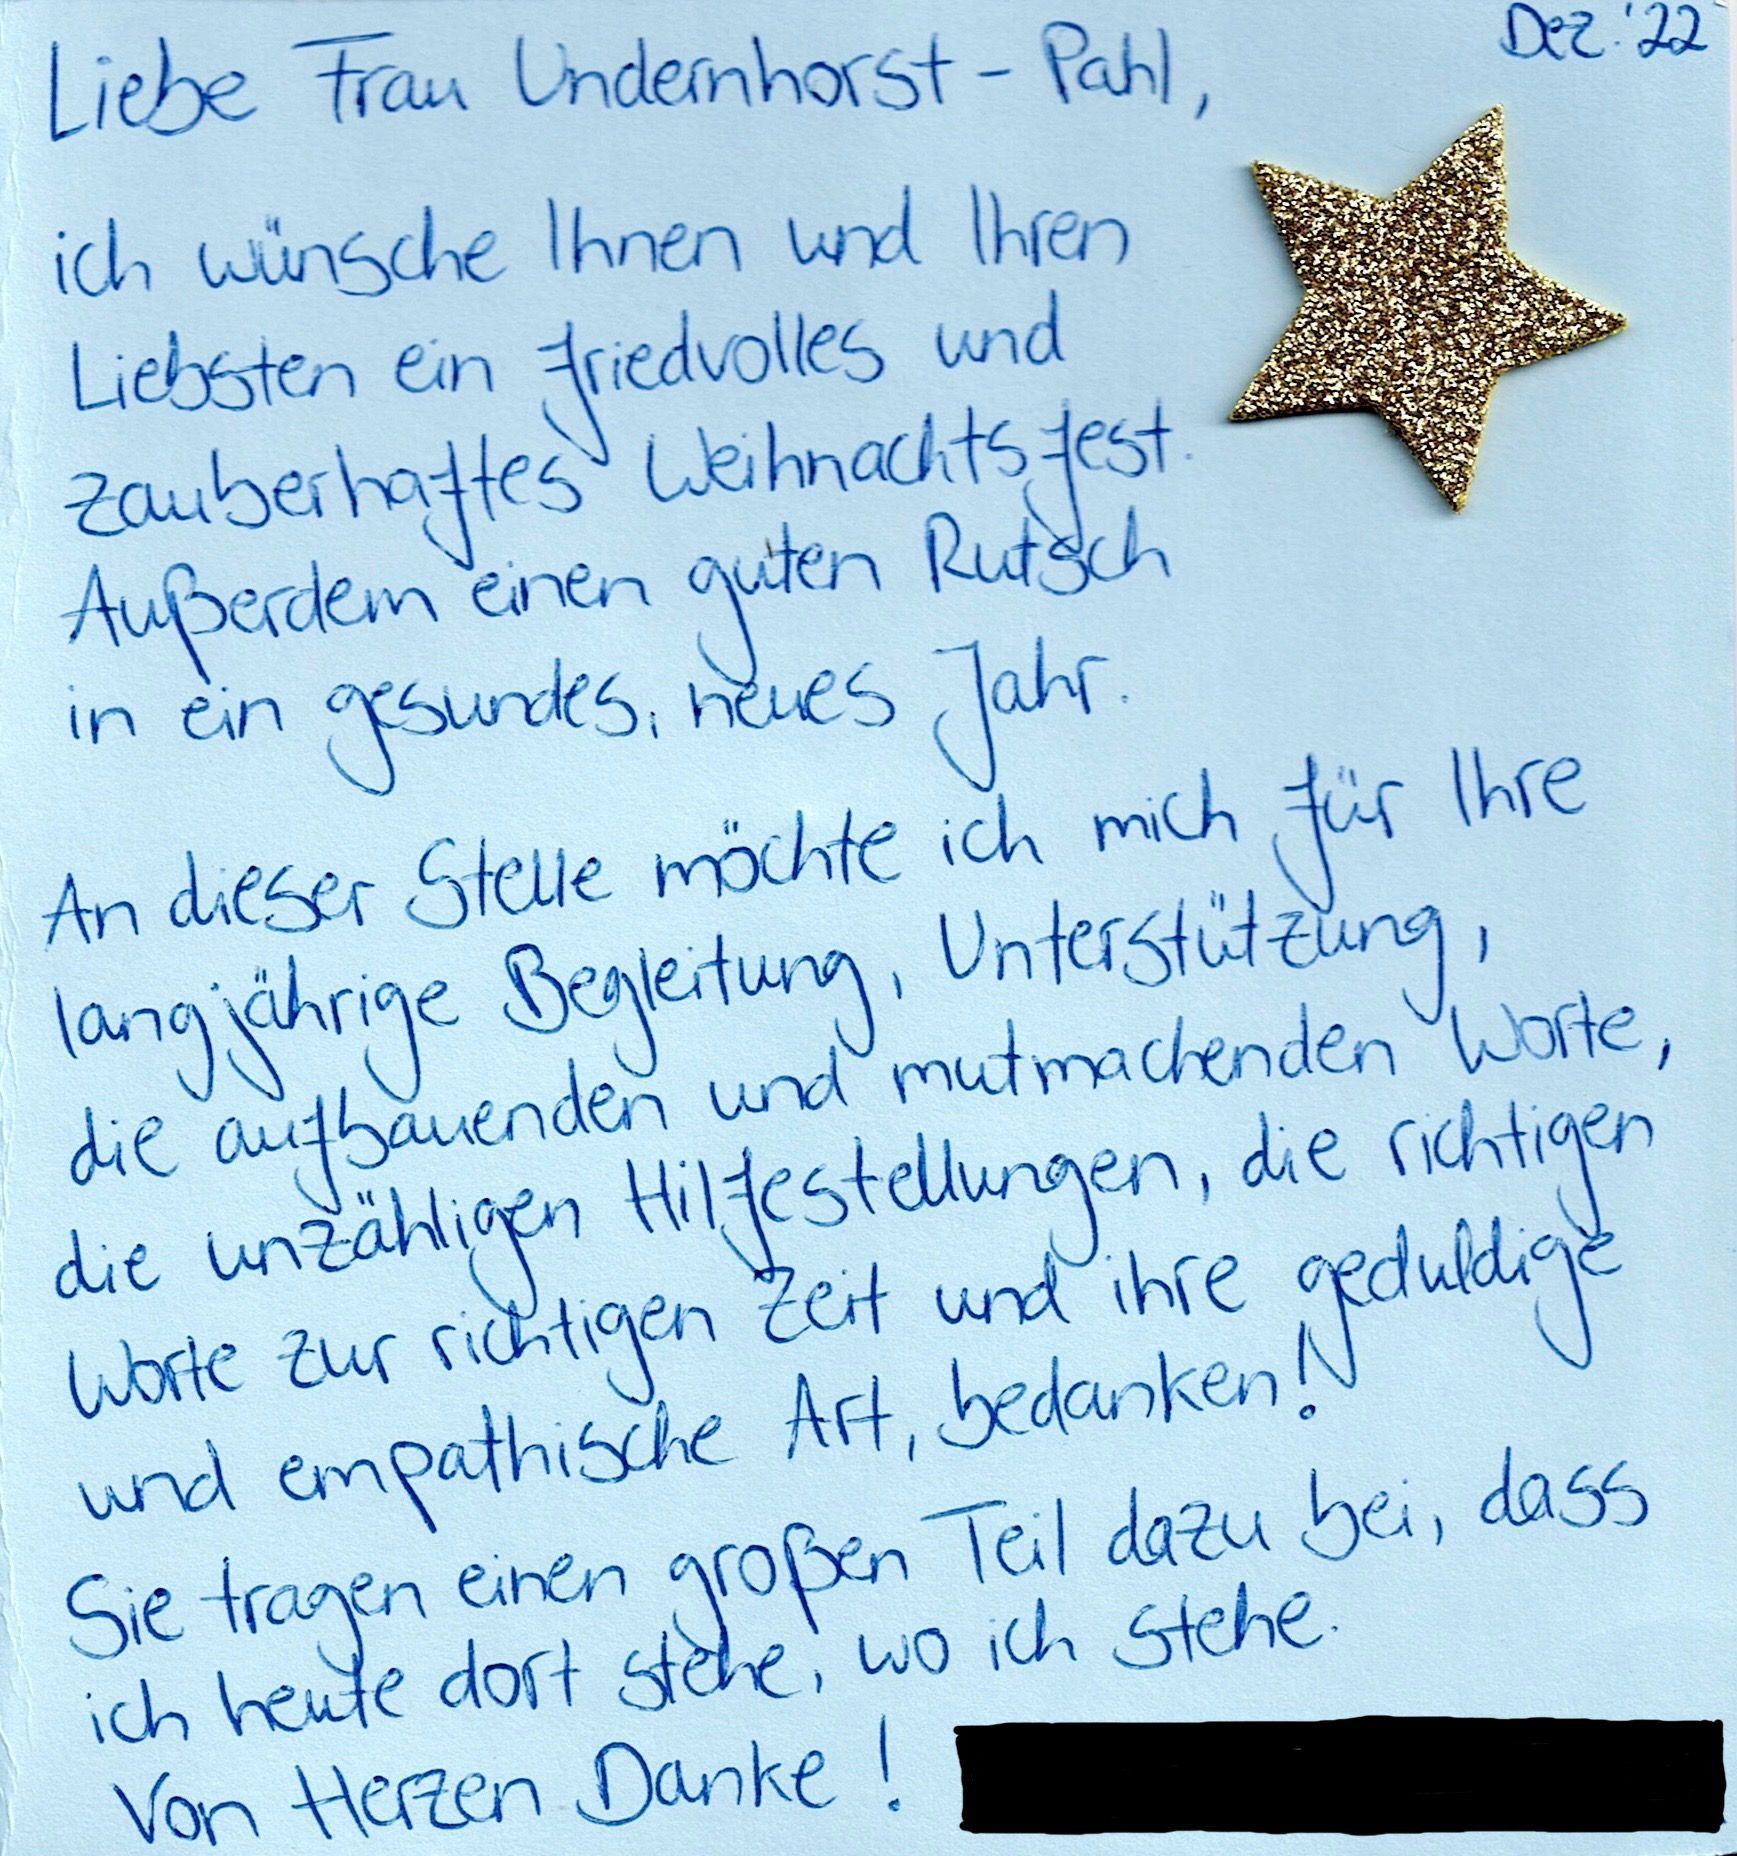 Dez. '22
Liebe Frau Undernhorst - Pahl,
ich wünsche Ihnen und Ihren
Liebsten ein friedvolles und
zauberhaftes Weihnachtsfest.
Außerdem einen guten Rutsch
in ein gesundes, neues Jahr.
An dieser Stelle möchte ich mich für Ihre
langjährige Begleitung, Unterstützung,
die aufbauenden und mutmachenden Worte,
die unzähligen Hilfestellungen, die richtigen
Worte zur richtigen Zeit und ihre geduldige
und empathische Art, bedanken!
Sie tragen einen großen Teil dazu bei, dass
ich heute dort stehe, wo ich stehe.
Von Herzen Danke!